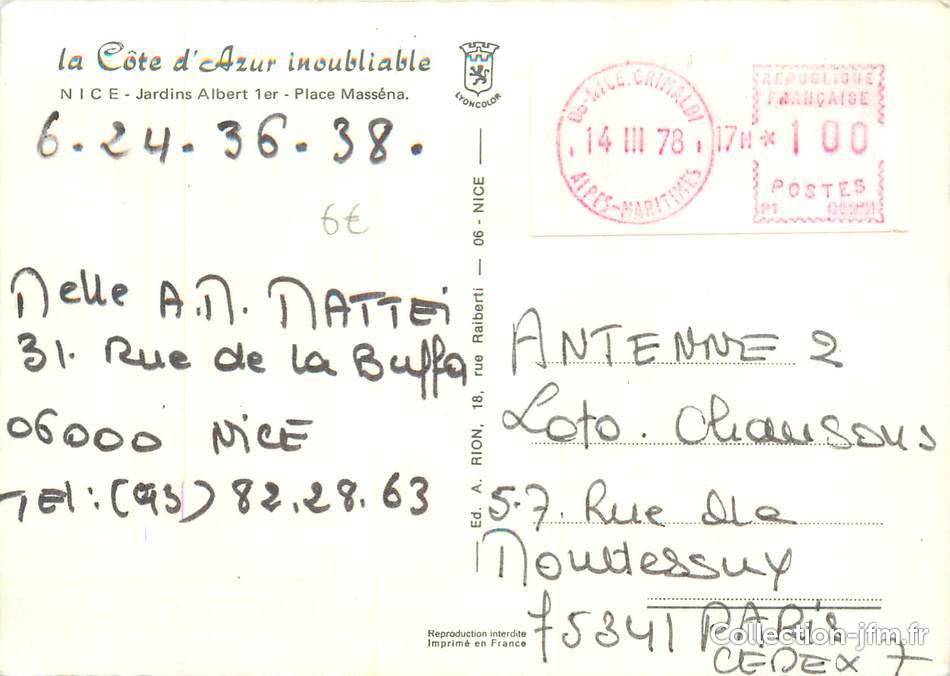 la Côte d'Azur inoubliable
NICE - Jardins Albert 1er - Place Masséna.
LYONCOLOR
6.24.36.38.
6€
Melle A.M. MATTEI
31. Rue de la Buffa
06000 NICE
TEl: (93) 82.28.63
Ed. A. RION, 18, rue Raiberti — 06 - NICE
Reproduction interdite
Imprimé en France
06-NICE GRIMALDI
14 III 78
ALPES-MARITIMES
17H *
REPUBLIQUE
FRANÇAISE
100
POSTES
ANTENNE 2
Loto. Chansons
5.7. Rue de
Monttessuy
75341 PARIS
CEDEX 7
Collection-jfm.fr